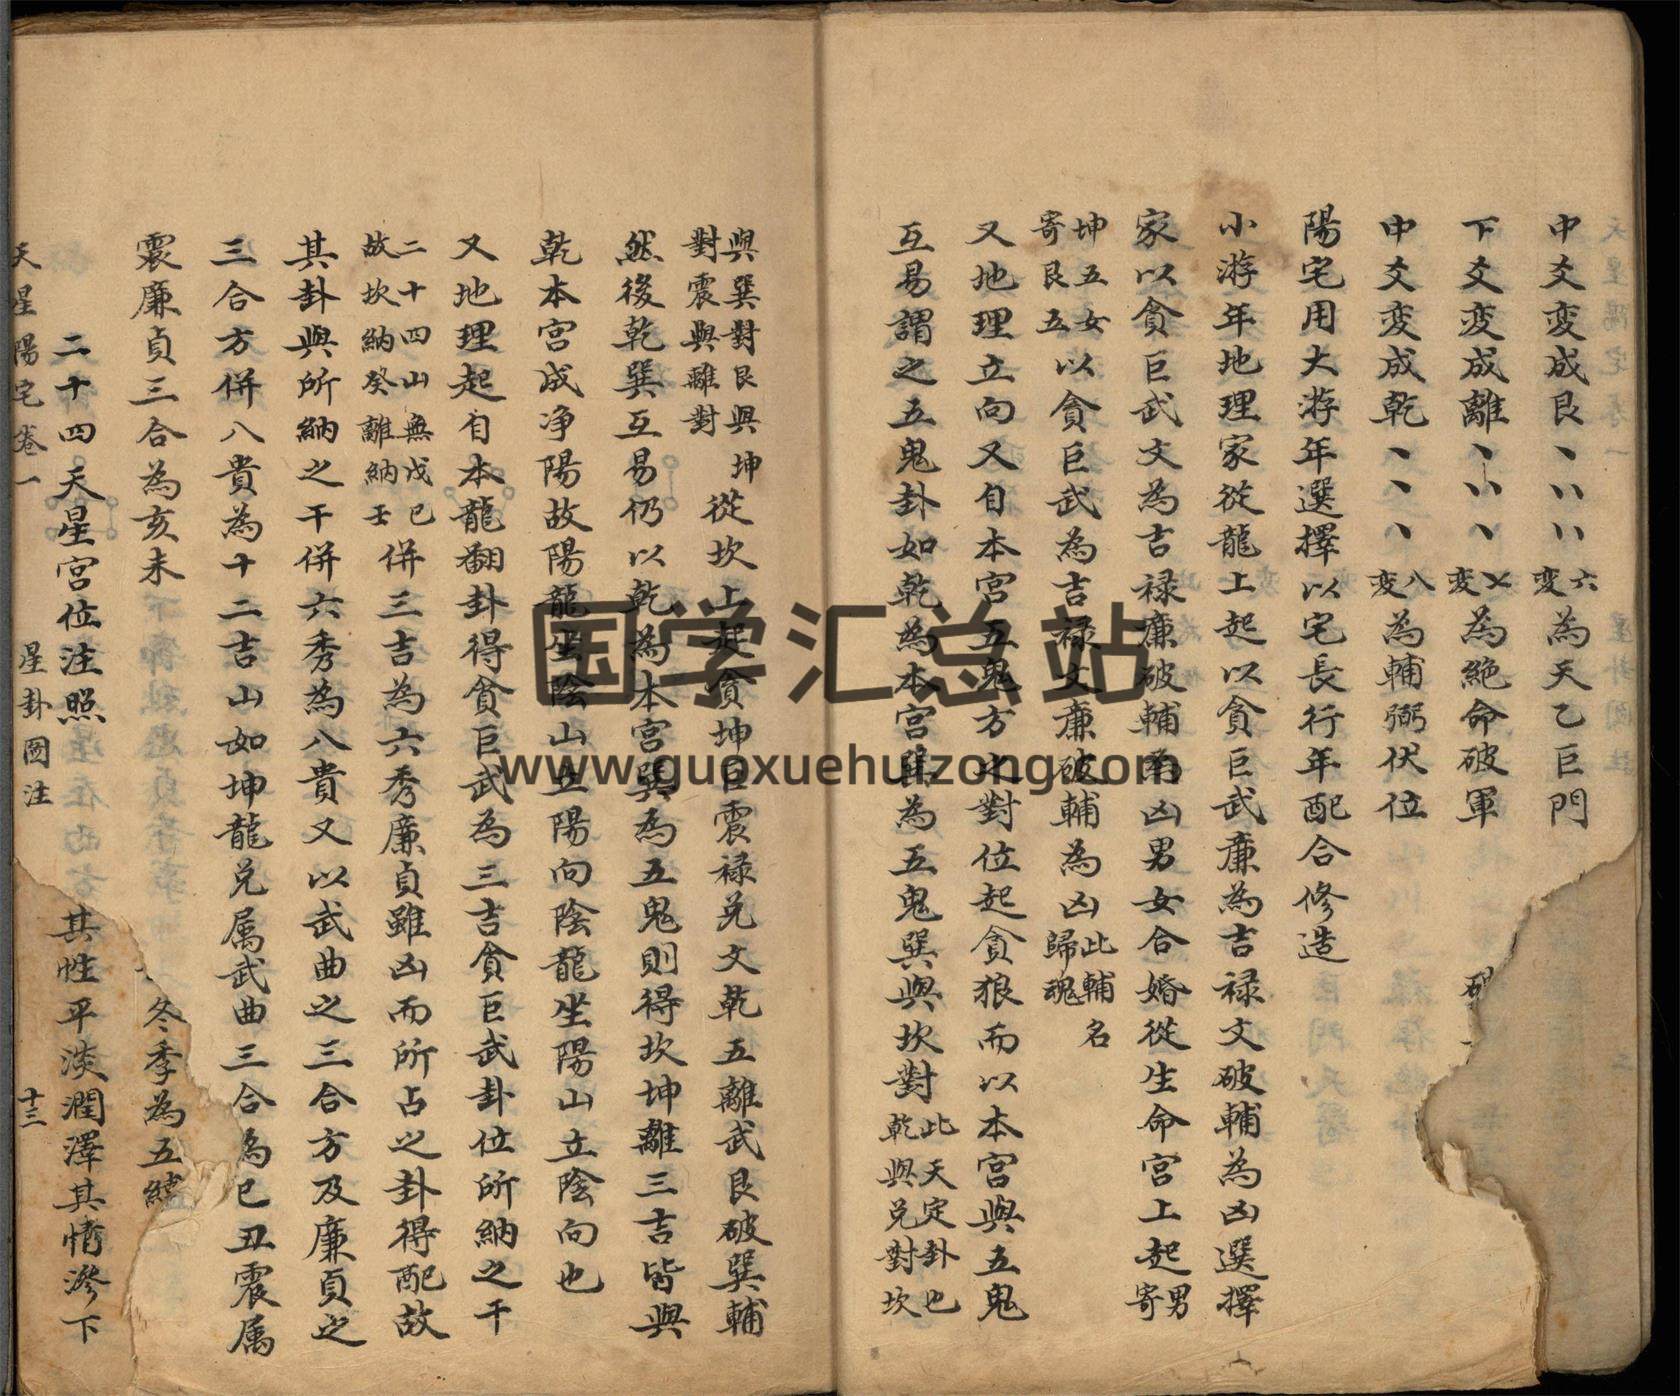 中爻変成艮丶丶丶丶丶六変為天乙巨門
下爻変成離丶丶丶丶㐅変為絶命破軍
中爻変成乾丶丶丶八変為輔弼伏位
陽宅用大游年選擇以宅長行年配合修造
小游年地理家從龍上起以貪巨武廉為吉禄文破輔為凶選擇
家以貪巨武文為吉禄廉破輔為凶男女合婚從生命宮上起男寄
坤五女寄艮五以貪巨武為吉禄文廉破輔為凶此輔名歸魂
又地理立向又自本宮五鬼方之對位起貪狼而以本宮與五鬼
互易謂之五鬼卦如乾為本宮離為五鬼巽與坎對此天定卦也乾與兌對坎
與巽對艮與坤對震與離對從坎上起貪坤巨震禄兌文乾五離武艮破巽輔
然後乾巽互易仍以乾為本宮巽為五鬼則得坎坤離三吉皆與
乾本宮成净陽故陽龍坐陰山立陽向陰龍坐陽山立陰向也
又地理起自本龍翻卦得貪巨武為三吉貪巨武卦位所納之干
二十四山無戊己故坎納癸離納壬併三吉為六秀廉貞雖凶而所占之卦得配故
其卦與所納之干併六秀為八貴又以武曲之三合方及廉貞之
三合方併八貴為十二吉山如坤龍兌属武曲三合為巳丑震属
震廉貞三合為亥未
冬季為五
二十四天星宮位注照 其性平淡潤澤其情滲下
天星陽宅卷一 星卦圖注 十三
国学汇总站
www.guoxuehuizong.com